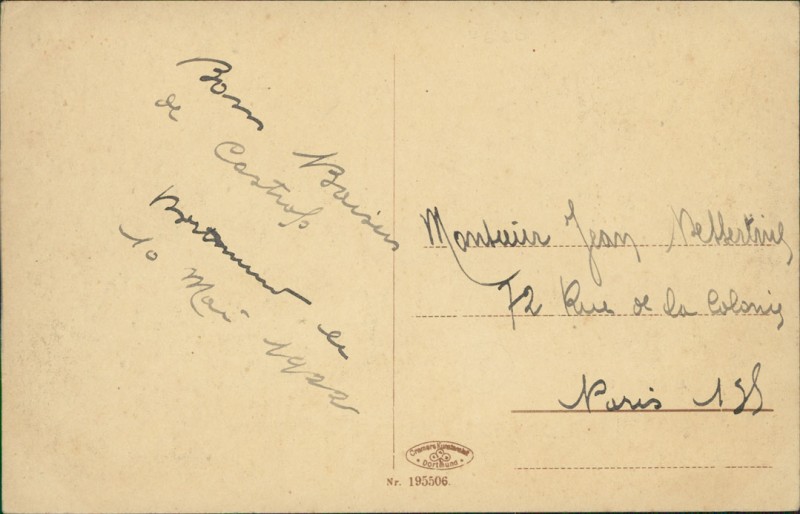 Bons Baisers
de Castrop
Dortmund le
10 Mai 1922
Monsieur Jean
72 Rue de la Colonie
Paris 13e
Cramers Kunstanstalt
Dortmund
Nr. 195506.